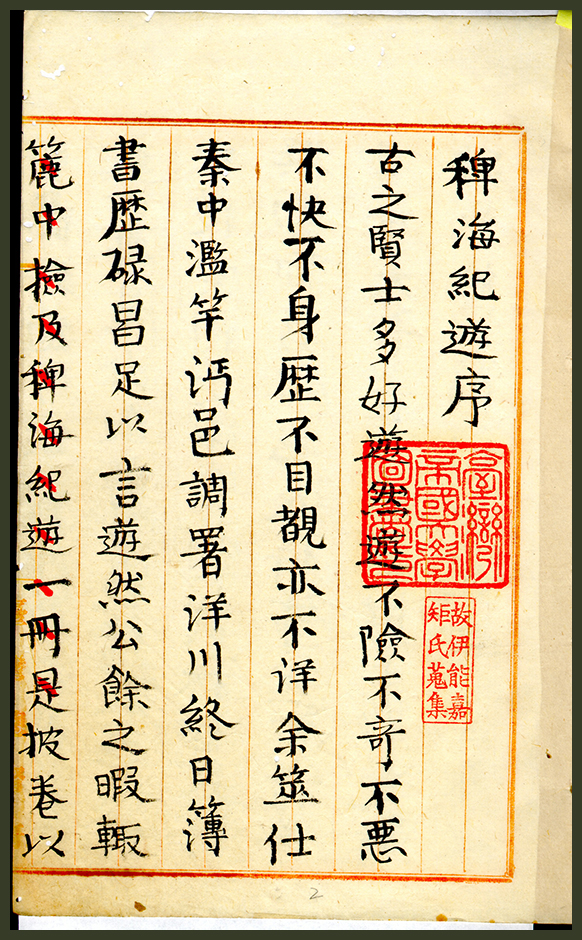 稗海紀遊序
古之賢士多好遊然遊不險不奇不悪
不快不身歴不目覩亦不详余筮仕
秦中濫竿沔邑調署洋川終日簿
書歴碌昌足以言遊然公餘之暇輙
簏中撿及稗海紀遊一冊是披巻以
臺灣
帝國大學
圖書印
故伊能嘉
矩氏蒐集
2